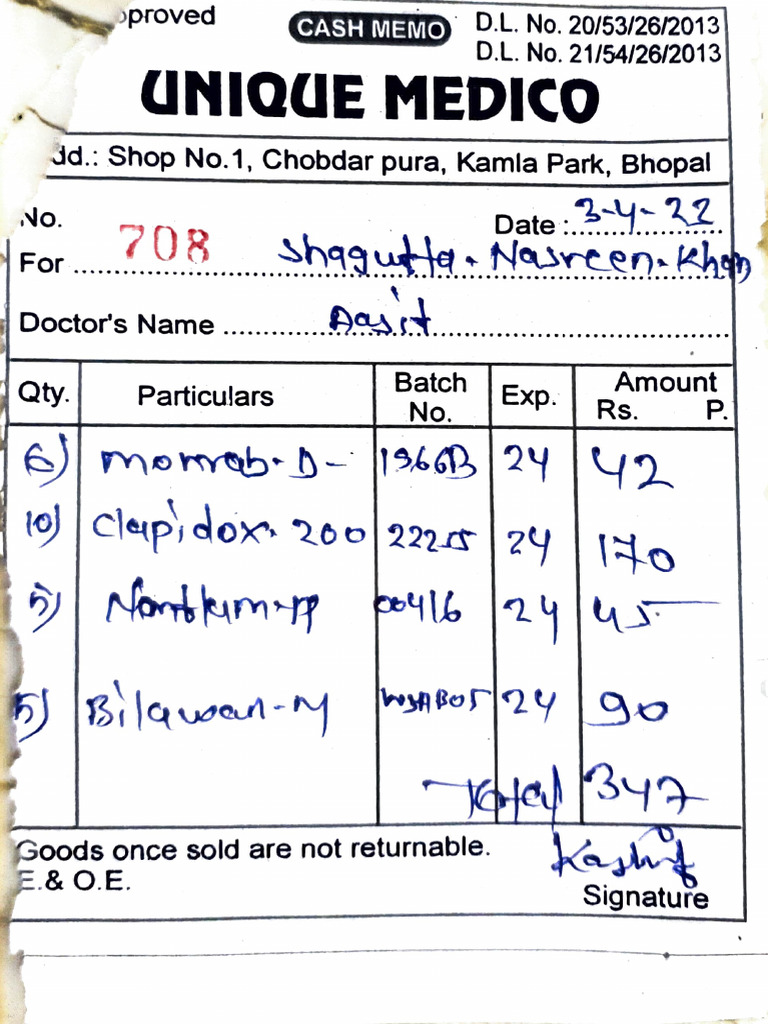 CASH MEMO D.L. No. 20/53/26/2013
D.L. No. 21/54/26/2013
UNIQUE MEDICO
Shop No.1, Chobdar pura, Kamla Park, Bhopal
No. 708 Date : 3-4-22
For Shagufta. Nasreen. Khan
Doctor's Name Aasit
Qty. Particulars Batch No. Exp. Amount Rs. P.
6) D- 1966B 24 42
10) Clapidox. 200 22255 24 170
5) 00416 24 45
5) Bilawan-M 24 90
Total 347
Goods once sold are not returnable.
E.& O.E. Kashif
Signature